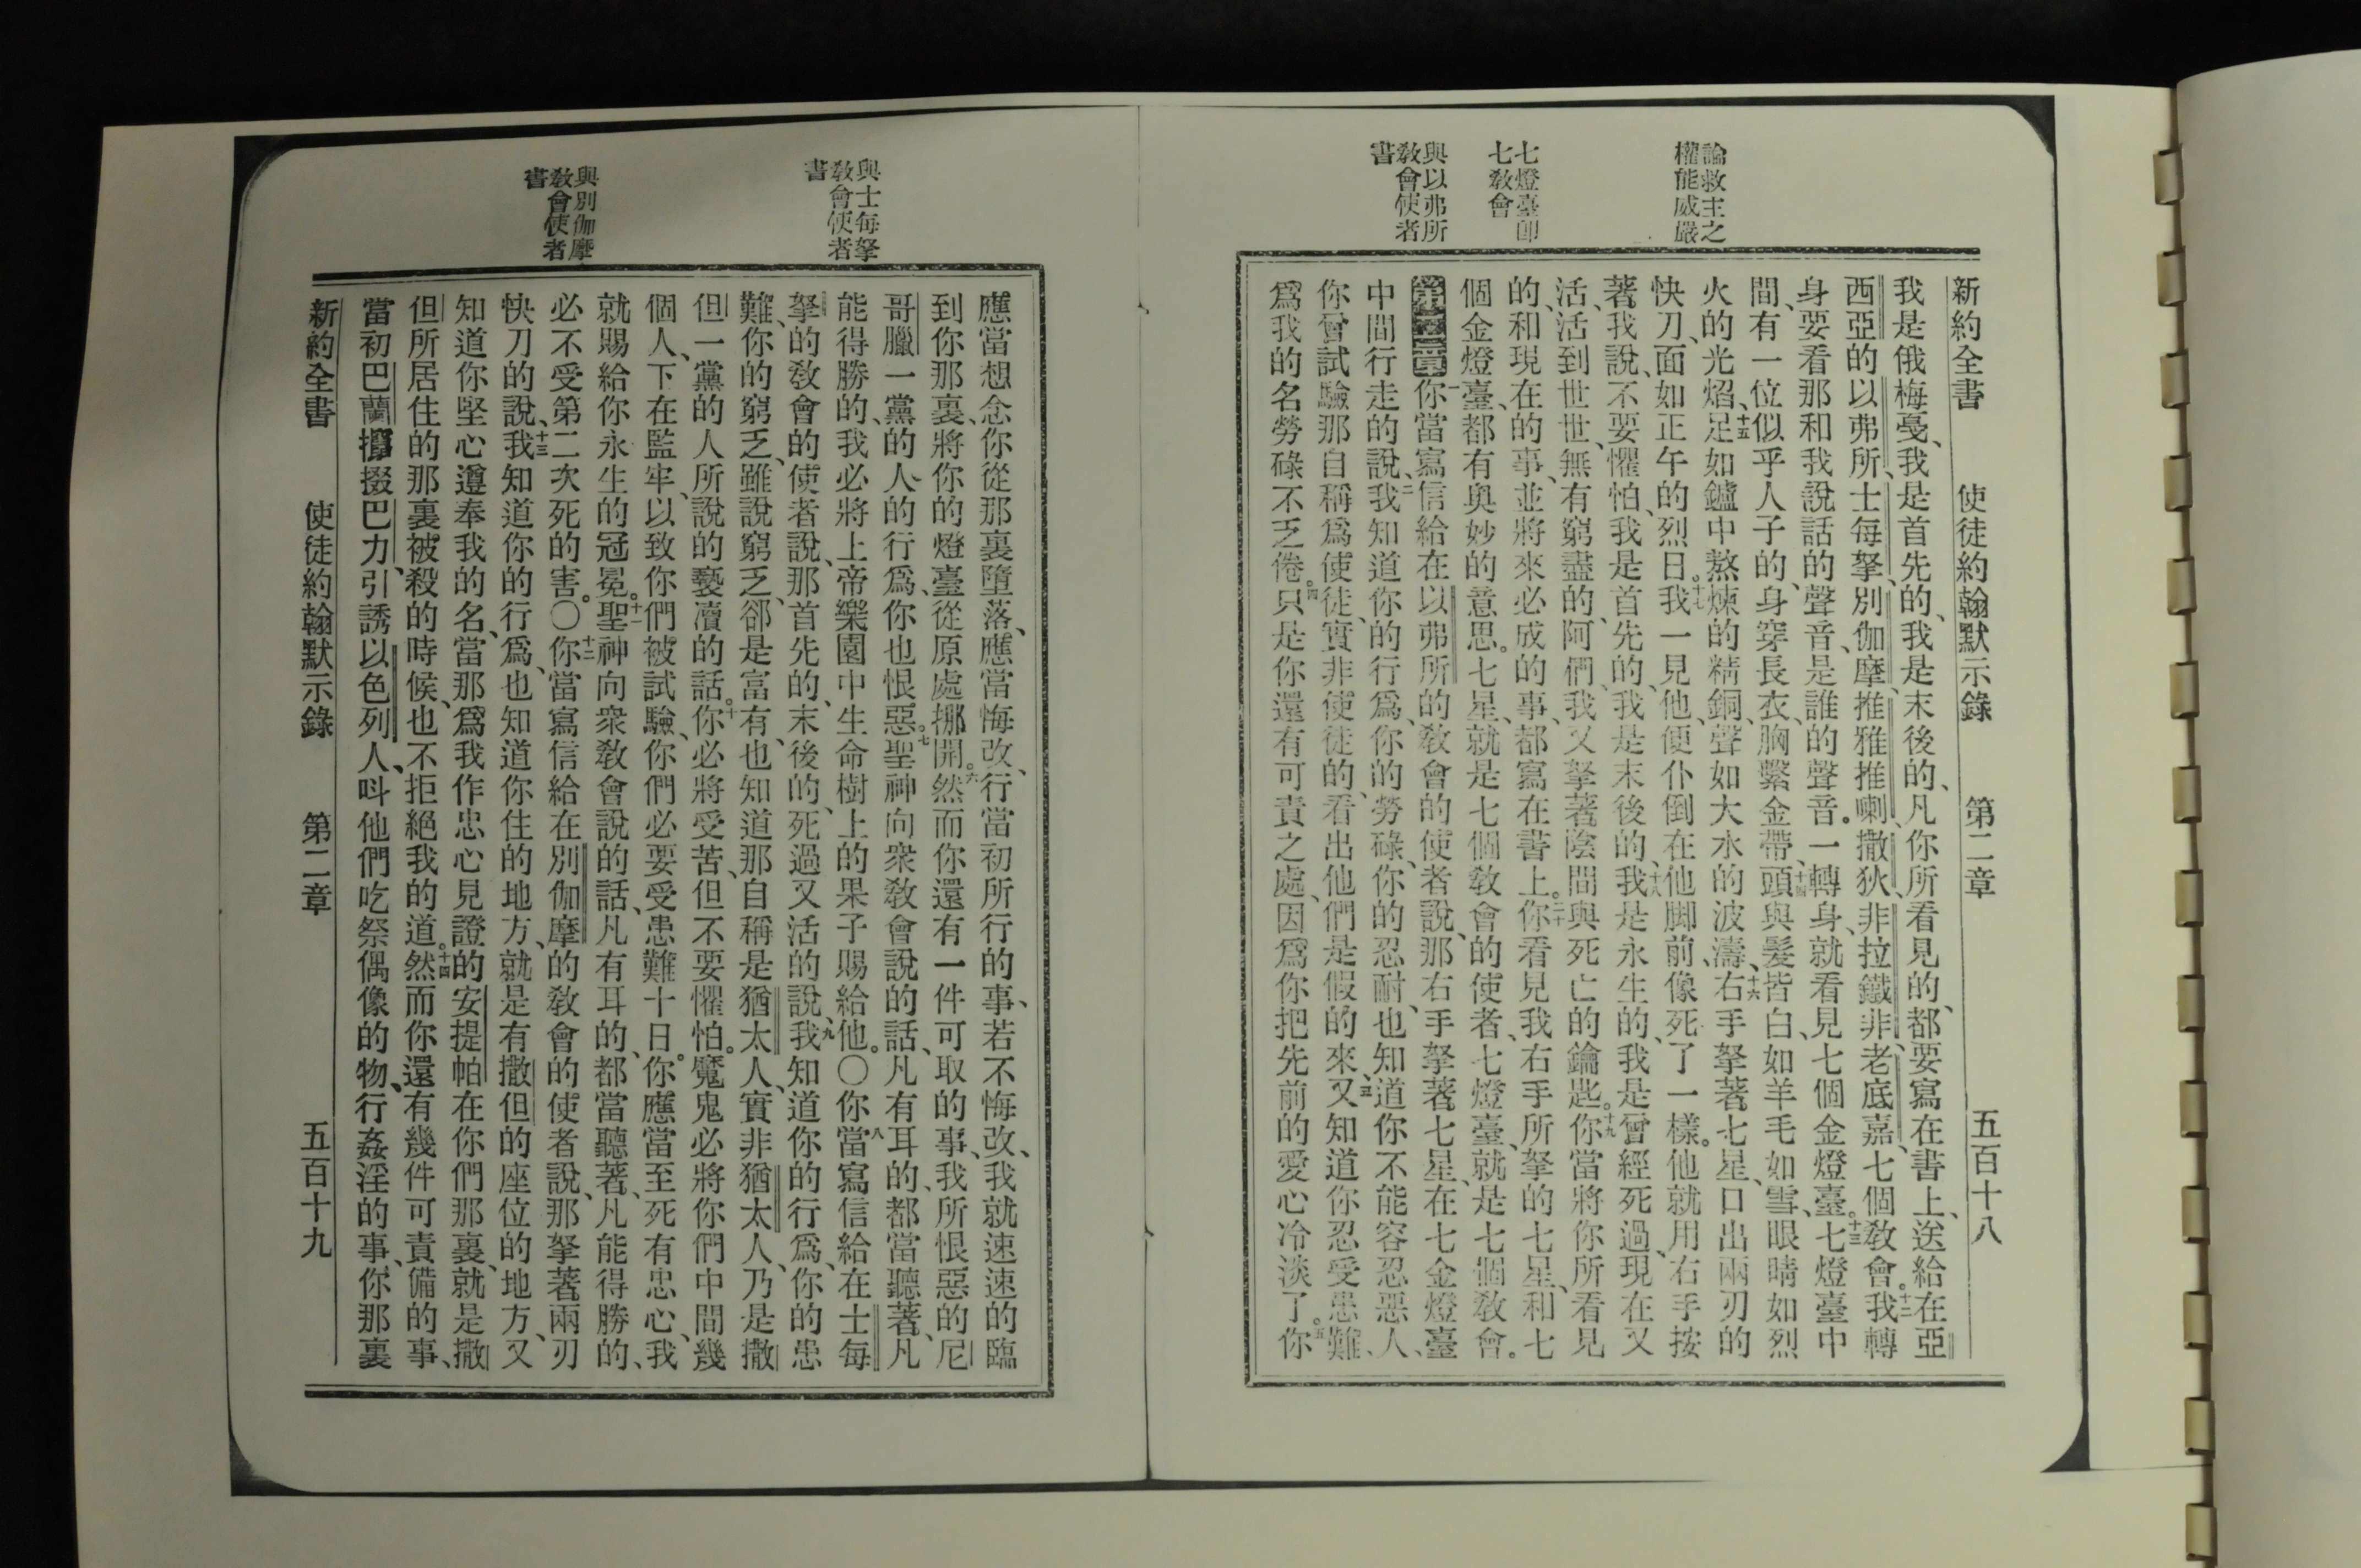 論救主之
權能威嚴
七燈臺卽
七敎會
與以弗所
敎會使者
書
新約全書 使徒約翰默示錄 第二章 五百十八
我是俄梅戞、我是首先的、我是末後的、凡你所看見的、都要寫在書上、送給在亞
西亞的以弗所、士每拏、別伽摩、推雅推喇、撒狄、非拉鐵非、老底嘉、七個敎會。十二我轉
身、要看那和我說話的聲音、是誰的聲音。一轉身、就看見七個金燈臺。十三七燈臺中
間、有一位似乎人子的、身穿長衣、胸繫金帶、十四頭與髮皆白、如羊毛如雪、眼睛如烈
火的光焰、十五足如鑪中熬煉的精銅、聲如大水的波濤、十六右手拏著七星、口出兩刃的
快刀、面如正午的烈日。十七我一見他、便仆倒在他脚前、像死了一樣。他就用右手按
著我說、不要懼怕、我是首先的、我是末後的、十八我是永生的、我是曾經死過、現在又
活、活到世世、無有窮盡的、阿們、我又拏著陰間與死亡的鑰匙。十九你當將你所看見
的、和現在的事、並將來必成的事、都寫在書上。二十你看見我右手所拏的七星、和七
個金燈臺、都有奧妙的意思。七星、就是七個敎會的使者、七燈臺、就是七個敎會。
第二章一你當寫信給在以弗所的敎會的使者說、那右手拏著七星、在七金燈臺
中間行走的說、二我知道你的行爲、你的勞碌、你的忍耐、也知道你不能容忍惡人、
你曾試驗那自稱爲使徒、實非使徒的、看出他們是假的來、三又知道你忍受患難、
爲我的名勞碌不乏倦。四只是你還有可責之處、因爲你把先前的愛心冷淡了。五你
與士每拏
敎會使者
書
與別伽摩
敎會使者
書
應當想念你從那裏墮落、應當悔改、行當初所行的事、若不悔改、我就速速的臨
到你那裏、將你的燈臺從原處挪開。六然而你還有一件可取的事、我所恨惡的尼
哥臘一黨的人的行爲、你也恨惡。七聖神向衆敎會說的話、凡有耳的、都當聽著、凡
能得勝的、我必將上帝樂園中生命樹上的果子賜給他。〇八你當寫信給在士每
拏的敎會的使者說、那首先的、末後的、死過又活的說、九我知道你的行爲、你的患
難、你的窮乏、雖說窮乏、卻是富有、也知道那自稱是猶太人、實非猶太人、乃是撒
但一黨的人所說的褻瀆的話。十你必將受苦、但不要懼怕。魔鬼必將你們中間幾
個人、下在監牢、以致你們被試驗、你們必要受患難十日。你應當至死有忠心、我
就賜給你永生的冠冕。十一聖神向衆敎會說的話、凡有耳的、都當聽著、凡能得勝的、
必不受第二次死的害。〇十二你當寫信給在別伽摩的敎會的使者說、那拏著兩刃
快刀的說、十三我知道你的行爲、也知道你住的地方、就是有撒但的座位的地方、又
知道你堅心遵奉我的名、當那爲我作忠心見證的安提帕在你們那裏、就是撒
但所居住的那裏、被殺的時候、也不拒絕我的道。十四然而你還有幾件可責備的事、
當初巴蘭攛掇巴力、引誘以色列人、呌他們吃祭偶像的物、行姦淫的事、你那裏
新約全書 使徒約翰默示錄 第二章 五百十九